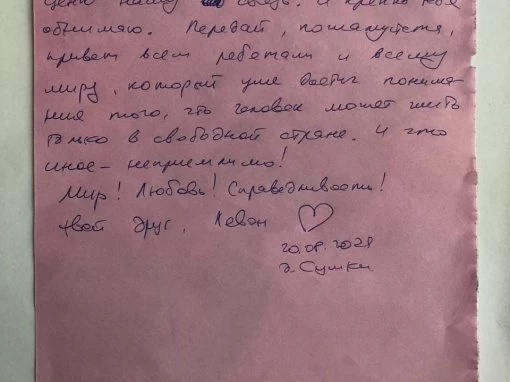 ценю нашу связь. И крепко тебя
обнимаю. Передай, пожалуйста,
привет всем ребятам и всему
миру, который уже достиг понима-
ния того, что человек может жить
только в свободной стране. И это
иное – неприемлимо!
Мир! Любовь! Справедливость!
твой друг, Леван ♡
20.08.2021
г. Сумы